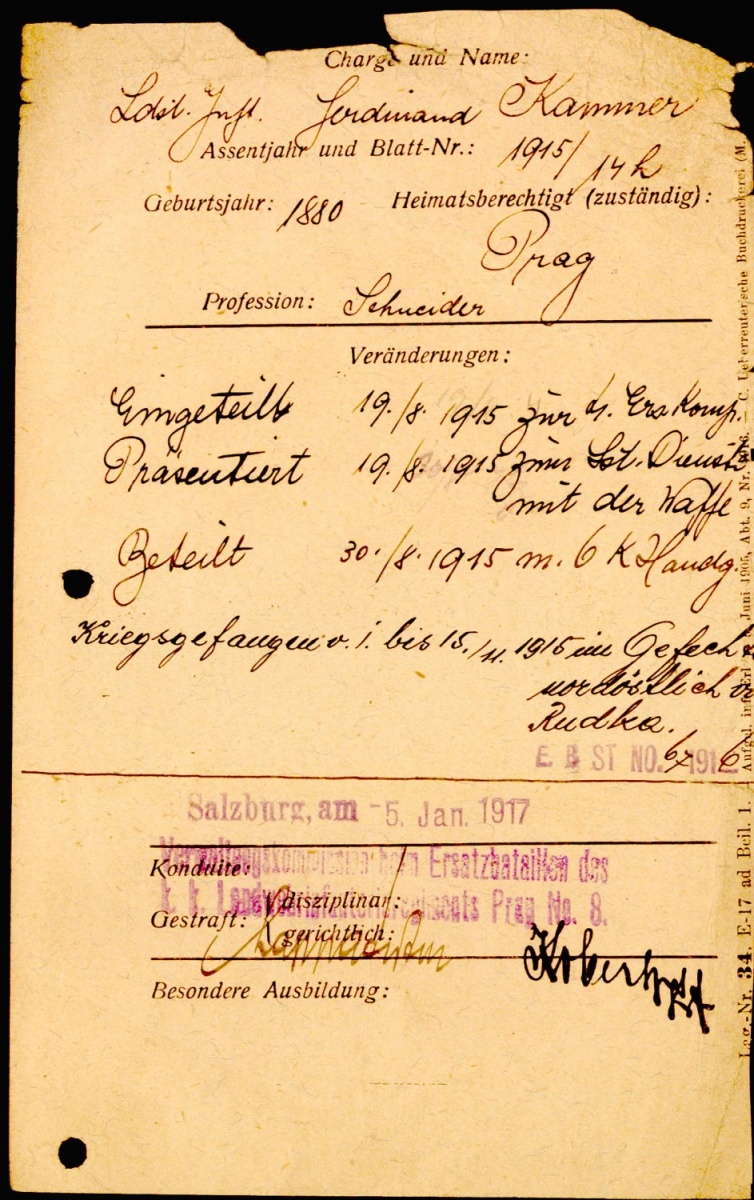 Charge und Name:
Ldst. Inft. Ferdinand Kammer
Assentjahr und Blatt-Nr.: 1915/14 h
Geburtsjahr: 1880 Heimatsberechtigt (zuständig):
Prag
Profession: Schneider
Veränderungen:
Eingeteilt 19./8. 1915 zur 4. Ers Komp.
Präsentiert 19./8. 1915 zum Lst. Dienst
mit der Waffe
Beteilt 30./8. 1915 m. 6 K Handg.
Kriegsgefangen v. 1. bis 15./11. 1915 im Gefecht
nordöstlich
Rudka.
E B ST NO. 67 191 6
Salzburg, am -5. Jan. 1917
Verwaltungskommission beim Ersatzbataillon des
k. k. Landwehrinfanterieregiments Prag No. 8.
Konduite:
Gestraft: disziplinar:
gerichtlich:
Besondere Ausbildung:
Lag.-Nr. 34. E-17 ad Beil. 1. Juni 1905, Abt. 9, Nr. — C. Ueberreutersche Buchdruckerei (M.